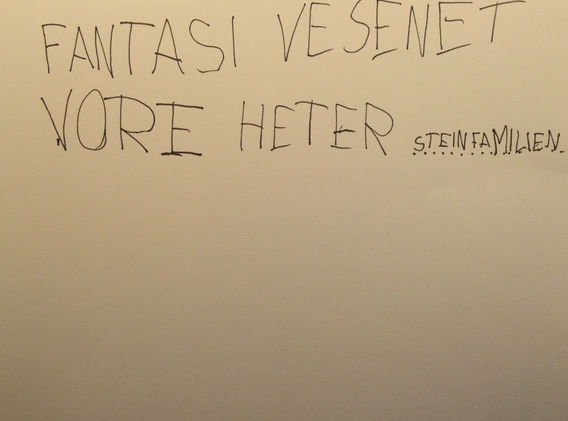 FANTASI VESENET
VORE HETER STEINFAMILIEN.